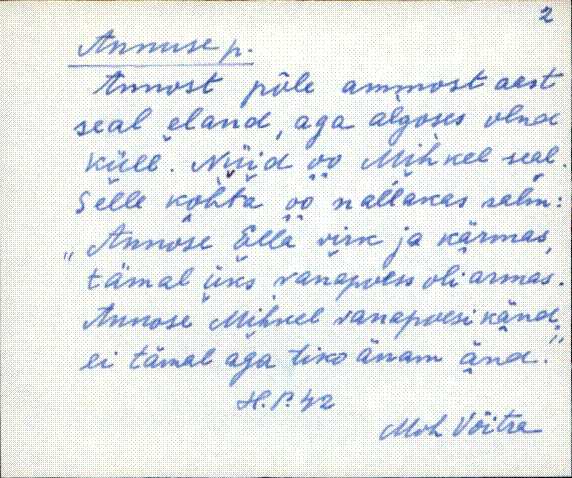 2
Annuse p.
Annost põle ammost aest
seal eland, aga algoses olnd
küll. Nüid öö Mihkel seal.
Selle kohta öö nallakas salm:
„Annose Ella virk ja kärmas,
tämal üks vanapoess oli armas.
Annose Mihkel vanapoesi känd,
ei tämal aga tiko änam änd."
H. P. 42
Moh Võitra